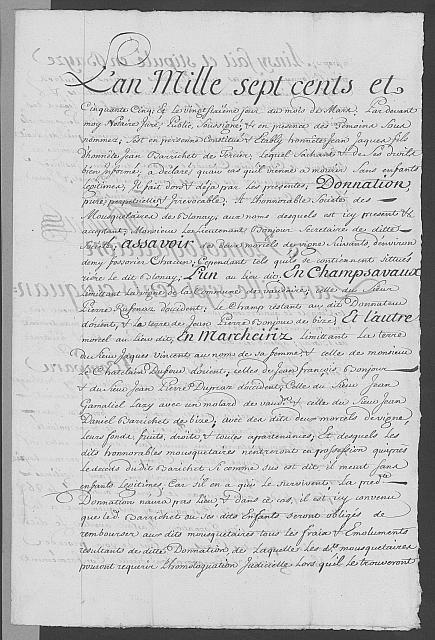 L'an Mille sept cents et
Cinquante Cinq, & le vingt sixième jour du mois de Mars. Par devant
moy Notaire Juré, Public, soussigné, & en presence des Témoins sous
nommez, s'est en personne Constitué & Etably honnête Jean Jaques fils
d'honnête Jean Barrichet de lequel sachant & de ses droits
bien informé, a déclaré, qu'au cas qu'il vienne a mourir sans enfants
legitimes, Il fait dors & deja par les presentes, Donnation,
pure, perpetuelle & Irrevocable, A l'honnorable Societé des
Mousquetaires de Blonay, aux noms desquels est icy present &
acceptant, Monsieur le Lieutenant Bonjour Secretaire de ditte
Societé, assavoir, ses deux morcels de vigne suivants d'environ
demy fossorier chacun, Cependant tels quils se contiennent situés
rière le dit Blonay; L'un au lieu dit, En Champsavaux
limitant la vigne de la Commune de celle du Sieur
Pierre d'occident, le Champ restant au dit Donnateur
d'orient, & la terre de Jean Pierre Bonjour de bize; Et l'autre
morcel au lieu dit, En Marcheiriz limitant la terre
du sieur Jaques Vincent au nom de sa femme, & celle de monsieur
le Chatelain Dufour d'orient, celles de Jean françois Bonjour
& du sieur Jean Pierre Dupraz d'occident; Celle du Sieur Jean
Gamaliel Lazy avec un motard de & celle du Sieur Jean
Daniel Barrichet de bize; avec des dits deux morcels de vigne
leurs fonds, fruits, droits, & toutes appartenances; Et desquels les
dits honnorables mousquetaires n'entreront en possession qu'apres
le decès du dit Barrichet si comme sus est dit, il meurt sans
enfants legitimes. Car s'il en a qui le survivent, La predte
Donnation n'aura pas lieu; & dans ce cas, il est icy convenu
que led. Barrichet ou ses dits Enfants seront obligés de
rembourser aux dits mousquetaires tous les fraix & Emoluments
resultants de ditte Donnation, de laquelle les dts. mousquetaires
pouront requerir l'homologation Judicielle lors qu'il le trouveront